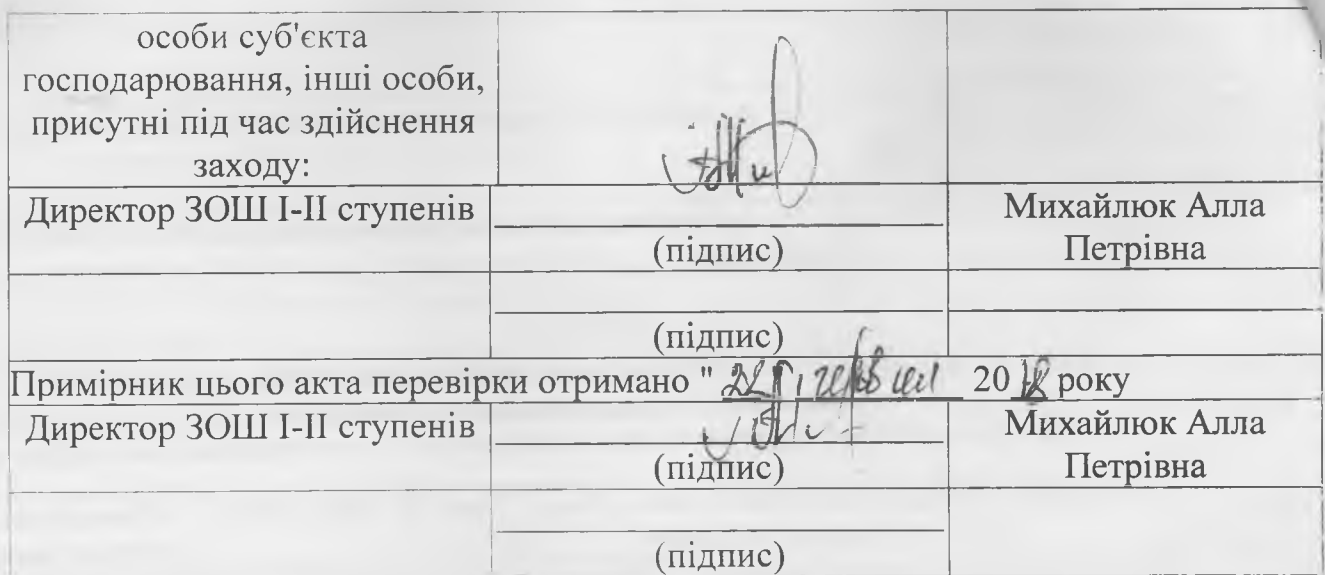 особи суб'єкта
господарювання, інші особи,
присутні під час здійснення
заходу:
Директор ЗОШ І-ІІ ступенів
(підпис)
Михайлюк Алла
Петрівна
(підпис)
Примірник цього акта перевірки отримано " 22 " червня 2018 року
Директор ЗОШ І-ІІ ступенів
(підпис)
Михайлюк Алла
Петрівна
(підпис)